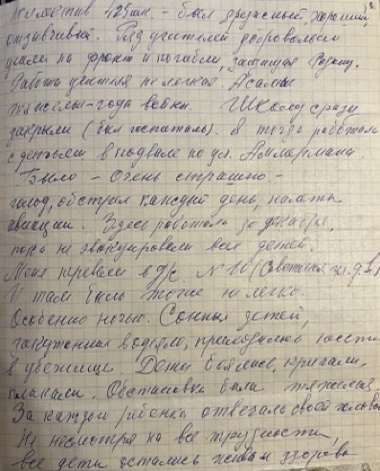 Коллектив 425 шк – был прекрасный, хороший,
отзывчивый. Ряд учителей добровольно
ушли на фронт и погибли, защищая Родину.
Работа учителя не легкая. А самые
тяжелые – года войны. Школу сразу
закрыли (был госпиталь). Я тогда работала
с детьми в подвале по ул.
Было – очень страшно –
голод, обстрел каждый день, налеты
авиации. Здесь работали до декабря,
пока не эвакуировали всех детей.
Меня перевели в д/с №
И там было тоже не легко.
Особенно ночью. Сонных детей,
закутанных в одеяло, приходилось нести
в убежище. Дети боялись, кричали,
плакали. Обстановка была тяжелая
За каждого ребенка отвечали своей головой
Не несмотря на все трудности,
все дети остались живы и здоровы